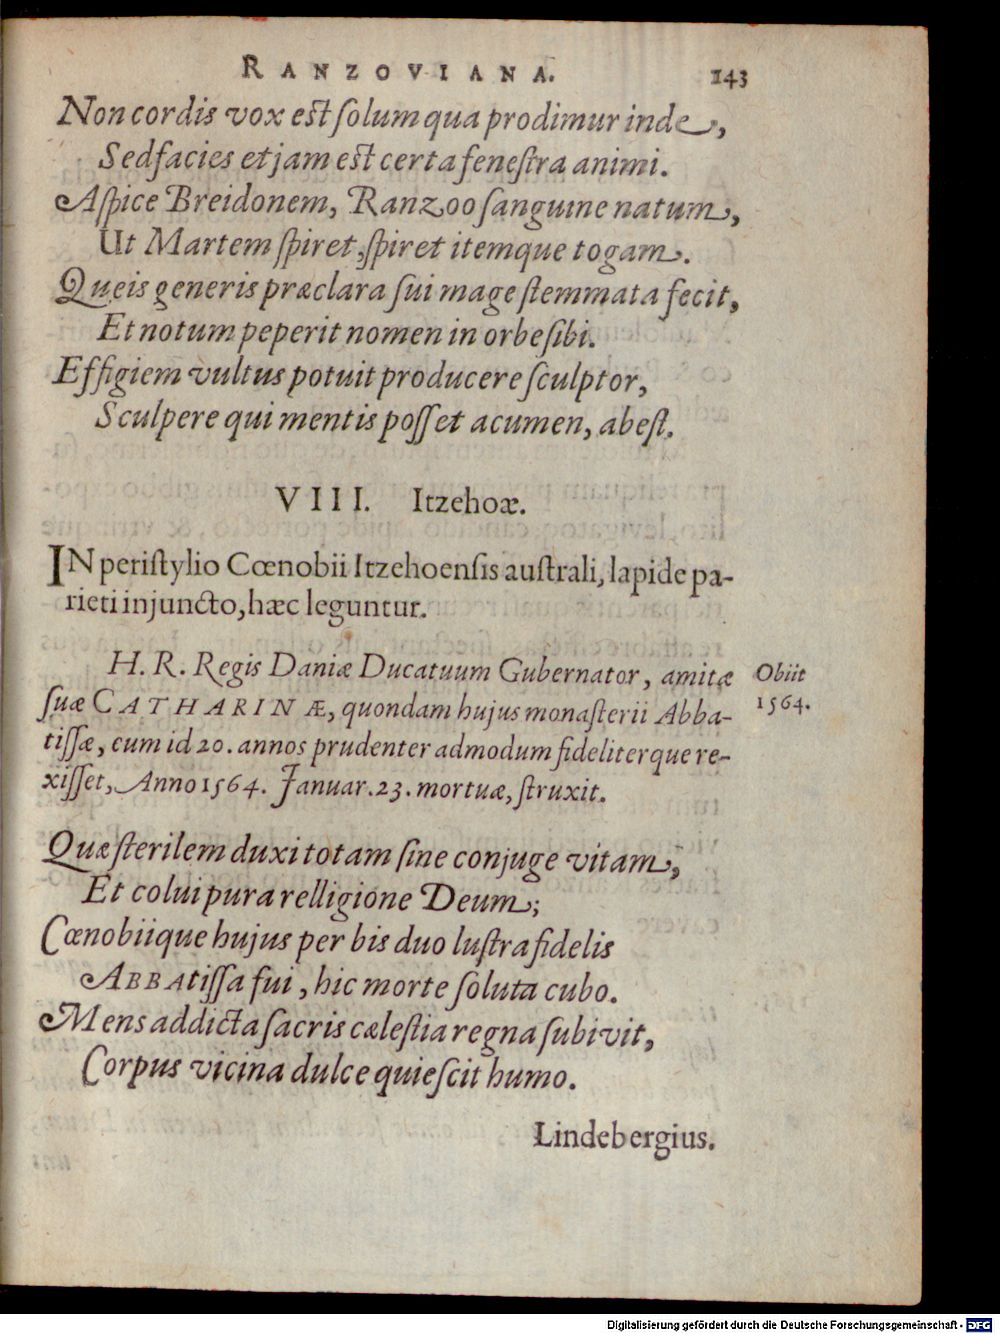 RANZOVIANA. 143
Non cordis vox est solum qua prodimur inde,
Sed facies etjam est certa fenestra animi.
Aspice Breidonem, Ranzoo sanguine natum,
Ut Martem spiret, spiret itemque togam.
Queis generis præclara sui mage stemmata fecit,
Et notum peperit nomen in orbe sibi.
Effigiem vultus potuit producere sculptor,
Sculpere qui mentis posset acumen, abest.
VIII. Itzehoæ.
IN peristylio Cœnobii Itzehoensis australi, lapide pa-
rieti injuncto, hæc leguntur.
H. R. Regis Daniæ Ducatuum Gubernator, amitæ
suæ CATHARINÆ, quondam hujus monasterii Abba-
tissæ, cum id 20. annos prudenter admodum fideliterque re-
xisset, Anno 1564. Januar. 23. mortuæ, struxit.
Obiit
1564.
Quæ sterilem duxi totam sine conjuge vitam,
Et colui pura relligione Deum;
Cœnobiique hujus per bis duo lustra fidelis
ABBAtissa fui, hic morte soluta cubo.
Mens addicta sacris cælestia regna subivit,
Corpus vicina dulce quiescit humo.
Lindebergius.
Digitalisierung gefördert durch die Deutsche Forschungsgemeinschaft - DFG